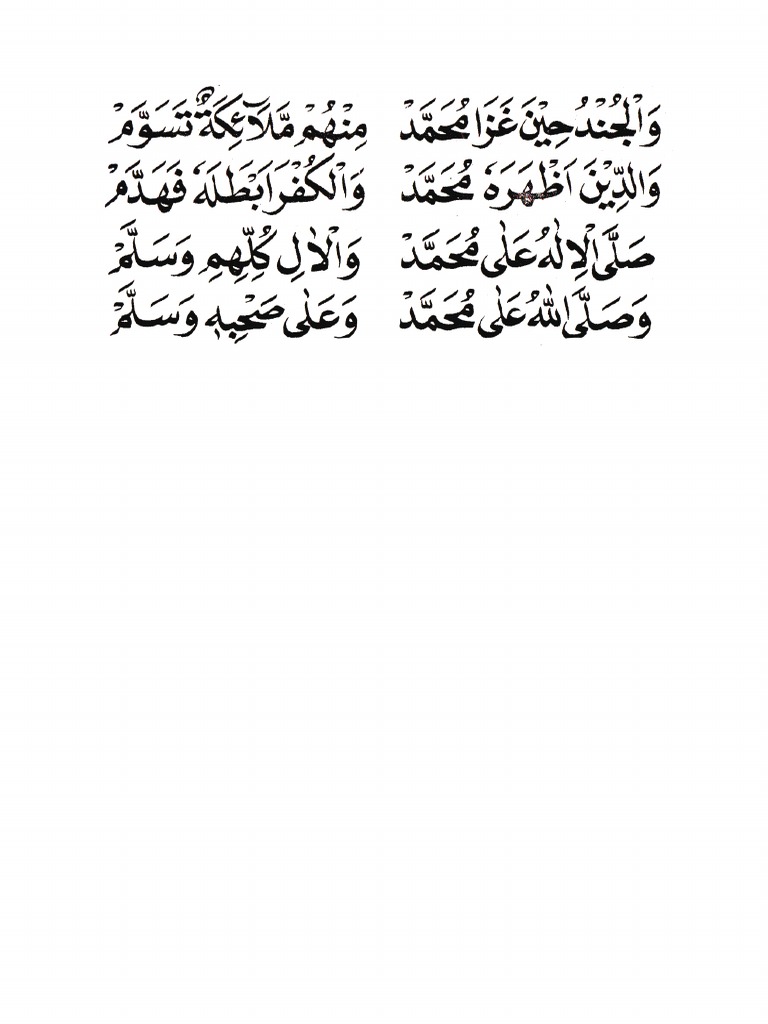 وَالْجُنْدُ حِيْنَ غَزَا مُحَمَّدْ مِنْهُمْ مَّلَآئِكَةٌ تَسَوَّمْ
وَالدِّيْنَ اَظْهَرَهٗ مُحَمَّدْ وَالْكُفْرَ اَبْطَلَهٗ فَهَدَّمْ
صَلَّى الْاِلٰهُ عَلٰى مُحَمَّدْ وَالْاٰلِ كُلِّهِمِ وَسَلَّمْ
وَصَلَّى اللّٰهُ عَلٰى مُحَمَّدْ وَعَلٰى صَحْبِهٖ وَسَلَّمْ